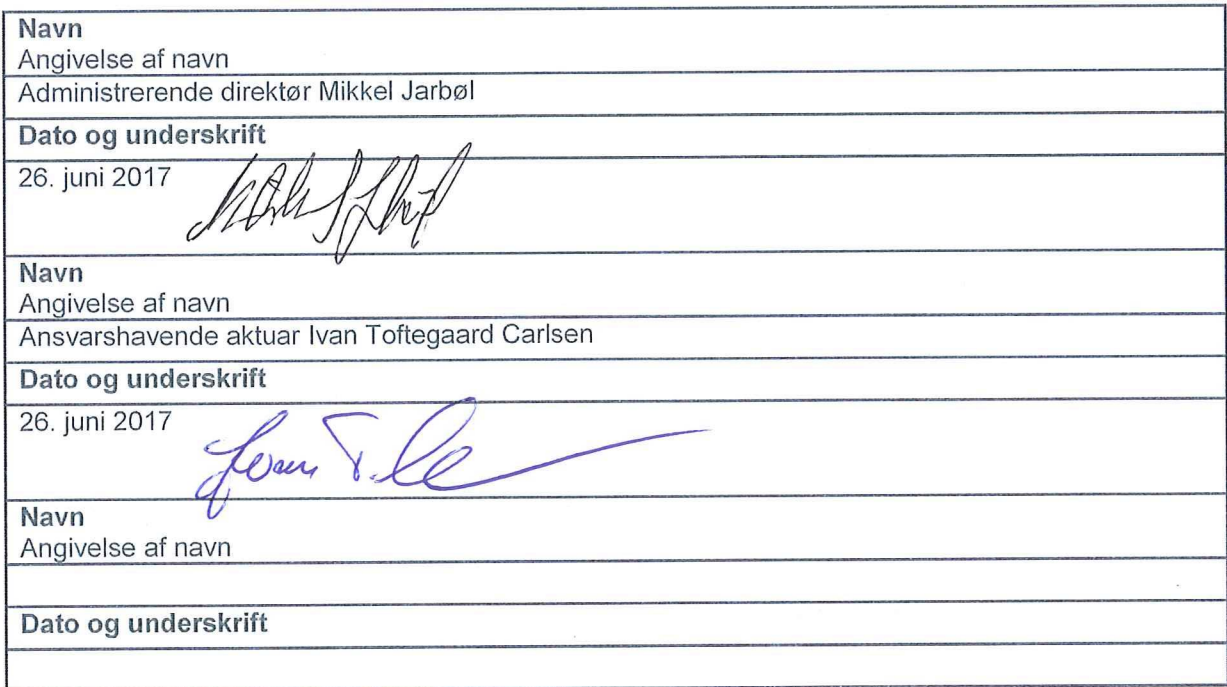 Navn
Angivelse af navn
Administrerende direktør Mikkel Jarbøl
Dato og underskrift
26. juni 2017
Navn
Angivelse af navn
Ansvarshavende aktuar Ivan Toftegaard Carlsen
Dato og underskrift
26. juni 2017
Navn
Angivelse af navn
Dato og underskrift